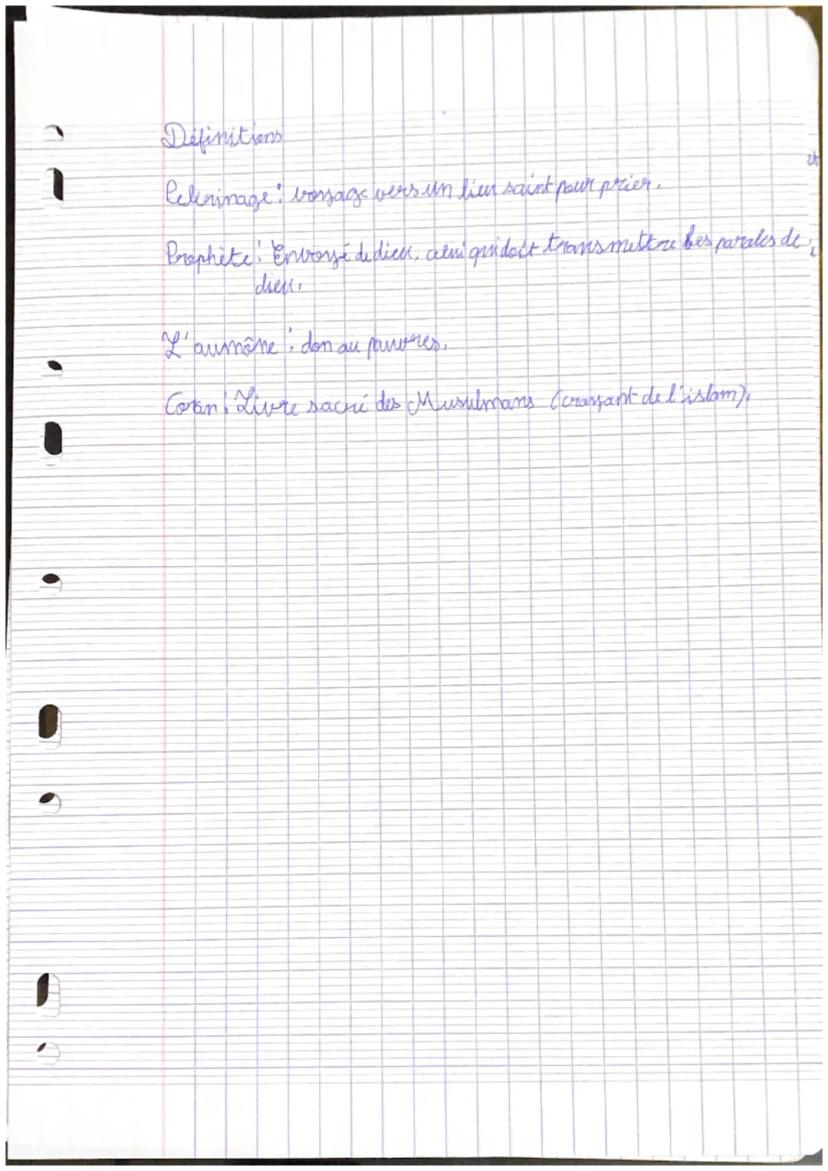 Définitions
Pelerinage : voyage vers un lieu saint pour prier.
Prophète : Envoyé de dieu, celui qui doit transmettre les paroles de
dieu.
L'aumône : don au pauvres.
Coran : Livre sacré des Musulmans (croyant de l'islam).